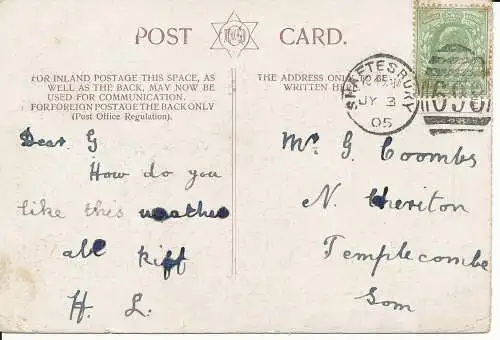 POST CARD.
FOR INLAND POSTAGE THIS SPACE, AS
WELL AS THE BACK, MAY NOW BE
USED FOR COMMUNICATION.
FOR FOREIGN POSTAGE THE BACK ONLY
(Post Office Regulation).
THE ADDRESS ONLY TO BE
WRITTEN HERE
SHAFTESBURY
JY 3
05
698
Dear G
How do you
like this weather
all kiff
H. L.
Mr G Coombs
N Cheriton
Templecombe
Som